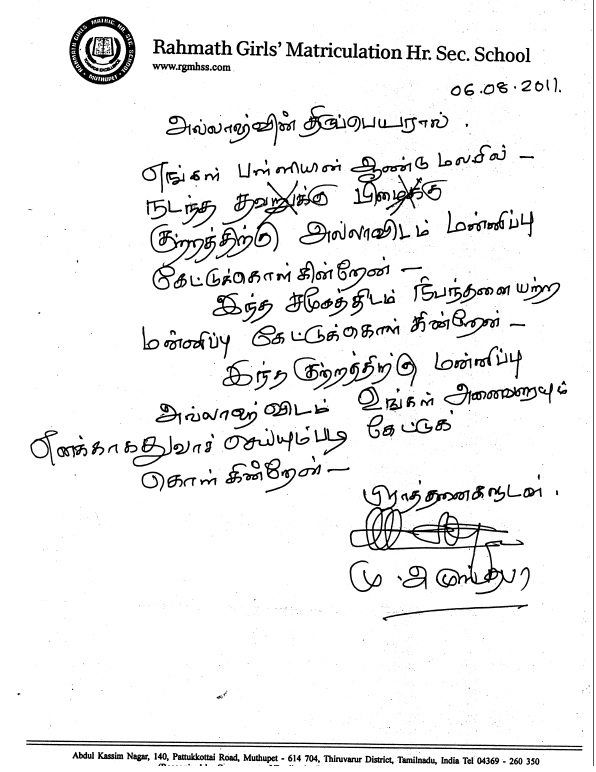 RAHMATH GIRLS' MATRIC HR. SEC. SCHOOL
MUTHUPET
Rahmath Girls' Matriculation Hr. Sec. School
www.rgmhss.com
06.08.2011.
அல்லாஹ்வின் திருப்பெயரால்.
எங்கள் பள்ளியின் ஆண்டு மலரில் –
நடந்த தவறுக்கு பிழைக்கு
குற்றத்திற்கு அல்லாவிடம் மன்னிப்பு
கேட்டுக்கொள்கின்றேன் –
இந்த சமூகத்திடம் நிபந்தனையற்ற
மன்னிப்பு கேட்டுக்கொள்கின்றேன் –
இந்த குற்றத்திற்கு மன்னிப்பு
அல்லாஹ்விடம் உங்கள் அனைவரையும்
எனக்காக துவாச் செய்யும்படி கேட்டுக்
கொள்கின்றேன் –
பிரார்த்தனைகளுடன்.
மு. அ முஸ்தபா
Abdul Kassim Nagar, 140, Pattukkottai Road, Muthupet - 614 704, Thiruvarur District, Tamilnadu, India Tel 04369 - 260 350